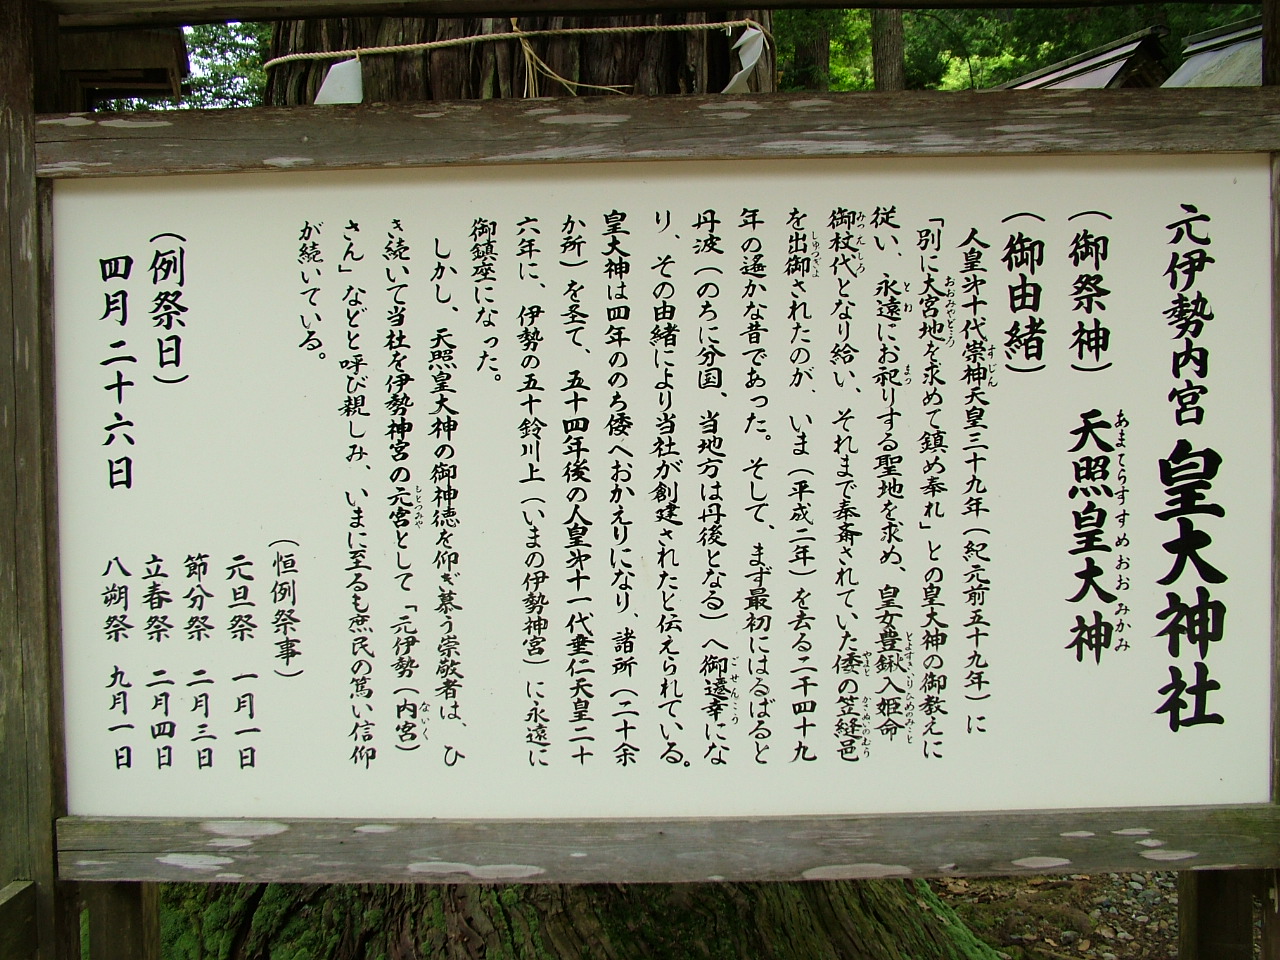 元伊勢内宮 皇大神社
(御祭神) 天照皇大神
あまてらすすめおおみかみ
(御由緒)
人皇第十代崇神天皇三十九年(紀元前五十九年)に
すじん
「別に大宮地を求めて鎮め奉れ」との皇大神の御教えに
おおみやどころ
従い、永遠にお祀りする聖地を求め、皇女豊鍬入姫命
とわ まつ とよすきいりひめのみこと
御杖代となり給い、それまで奉斎されていた倭の笠縫邑
みつえしろ やまと かさぬいのむら
を出御されたのが、いま(平成二年)を去る二千四十九
しゅつぎょ
年の遙かな昔であった。そして、まず最初にはるばると
丹波(のちに分国、当地方は丹後となる)へ御遷幸にな
ごせんこう
り、その由緒により当社が創建されたと伝えられている。
皇大神は四年ののち倭へおかえりになり、諸所(二十余
か所)を経て、五十四年後の人皇第十一代垂仁天皇二十
六年に、伊勢の五十鈴川上(いまの伊勢神宮)に永遠に
御鎮座になった。
しかし、天照皇大神の御神徳を仰ぎ慕う崇敬者は、ひ
き続いて当社を伊勢神宮の元宮として「元伊勢(内宮)
もとつみや ないく
さん」などと呼び親しみ、いまに至るも庶民の篤い信仰
が続いている。
(恒例祭事)
元旦祭 一月一日
節分祭 二月三日
立春祭 二月四日
八朔祭 九月一日
(例祭日)
四月二十六日